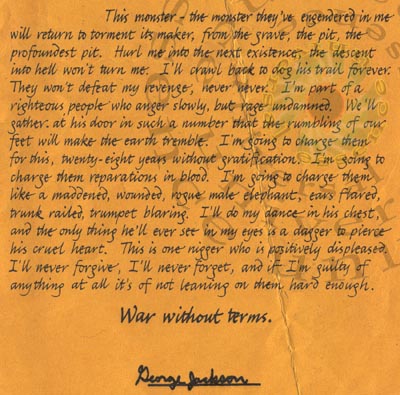 This monster – the monster they've engendered in me
will return to torment its maker, from the grave, the pit, the
profoundest pit. Hurl me into the next existence, the descent
into hell won't turn me. I'll crawl back to dog his trail forever.
They won't defeat my revenge, never never. I'm part of a
righteous people who anger slowly, but rage undamned. We'll
gather at his door in such a number that the rumbling of our
feet will make the earth tremble. I'm going to charge them
for this, twenty-eight years without gratification. I'm going to
charge them reparations in blood. I'm going to charge them
like a maddened, wounded, rogue male elephant, ears flared,
trunk railed, trumpet blaring. I'll do my dance in his chest,
and the only thing he'll ever see in my eyes is a dagger to pierce
his cruel heart. This is one nigger who is positively displeased.
I'll never forgive, I'll never forget, and if I'm guilty of
anything at all it's of not leaning on them hard enough.
War without terms.
George Jackson